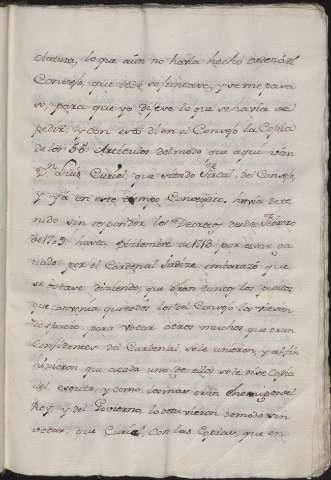 clatura, lo que aún no havia hecho ordenó el
Consejo, que
vo, para que yo dixese lo que se havia de
pedir, y con esto dí en el Consejo la Copia
de los 55 Articulos del modo que aqui ván
Dn. Luis Curiel, que siendo Fiscal del Consejo,
y en este tiempo Consegero, havia dete
nido sin responder los Decretos desde Febrero
de 1709 hasta Diciembre de 1713 por estar ga
nado por el Cardenal Judice embarazó que
se votase diciendo, que eran tantos los puntos
que convenia que todos los del Consejo los viesen
despacio para votar otros muchos que eran
confidentes del Cardenal se le unieron, y al fin
hicieron que a cada uno de ellos se le diese Copia
del escrito, y como los mas eran Enemigos del
Rey, y del Govierno lo detuvieron de modo sin
votar, que Curiel, con las Copias, que en